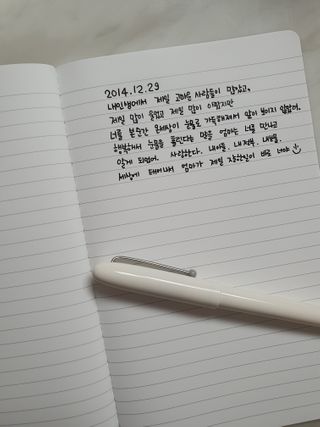 2014.12.29
내인생에서 제일 고마운 사람들이 많았고,
제일 많이 울었고 제일 많이 아팠지만
너를 본순간 온세상이 눈물로 가득해져서 앞이 보이지 않았어.
행복해서 눈물을 흘린다는 말을 엄마는 너를 만나고
알게 되었어. 사랑한다. 내아들. 내 전부. 내보물.
세상에 태어나서 엄마가 제일 잘한일이 바로 너야